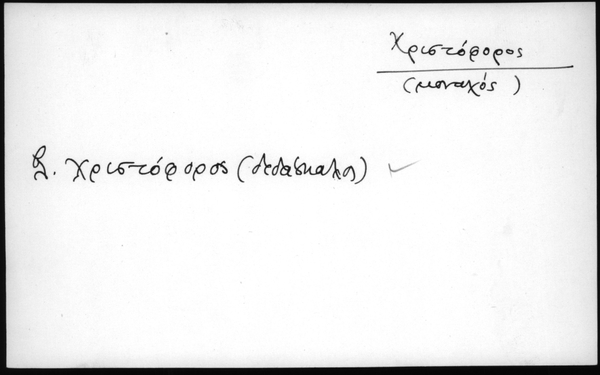 Χριστόφορος
(μοναχός)
β. Χριστόφορος (διδάσκαλος)